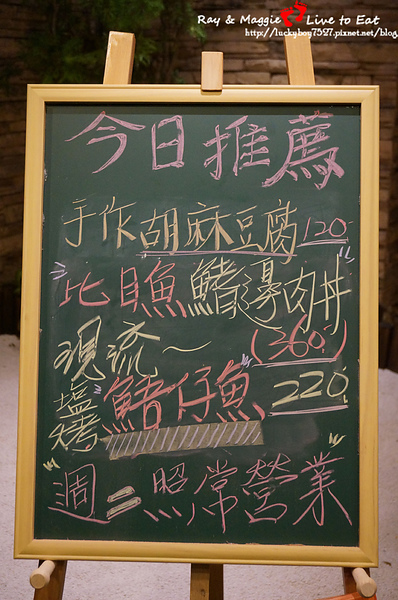 Ray & Maggie Live to Eat
http://luckyboy7527.pixnet.net/blog
今日推薦
手作胡麻豆腐 120
比目魚鰭邊肉丼
(360)
現流~
塩烤鯖仔魚 220
週二照常營業